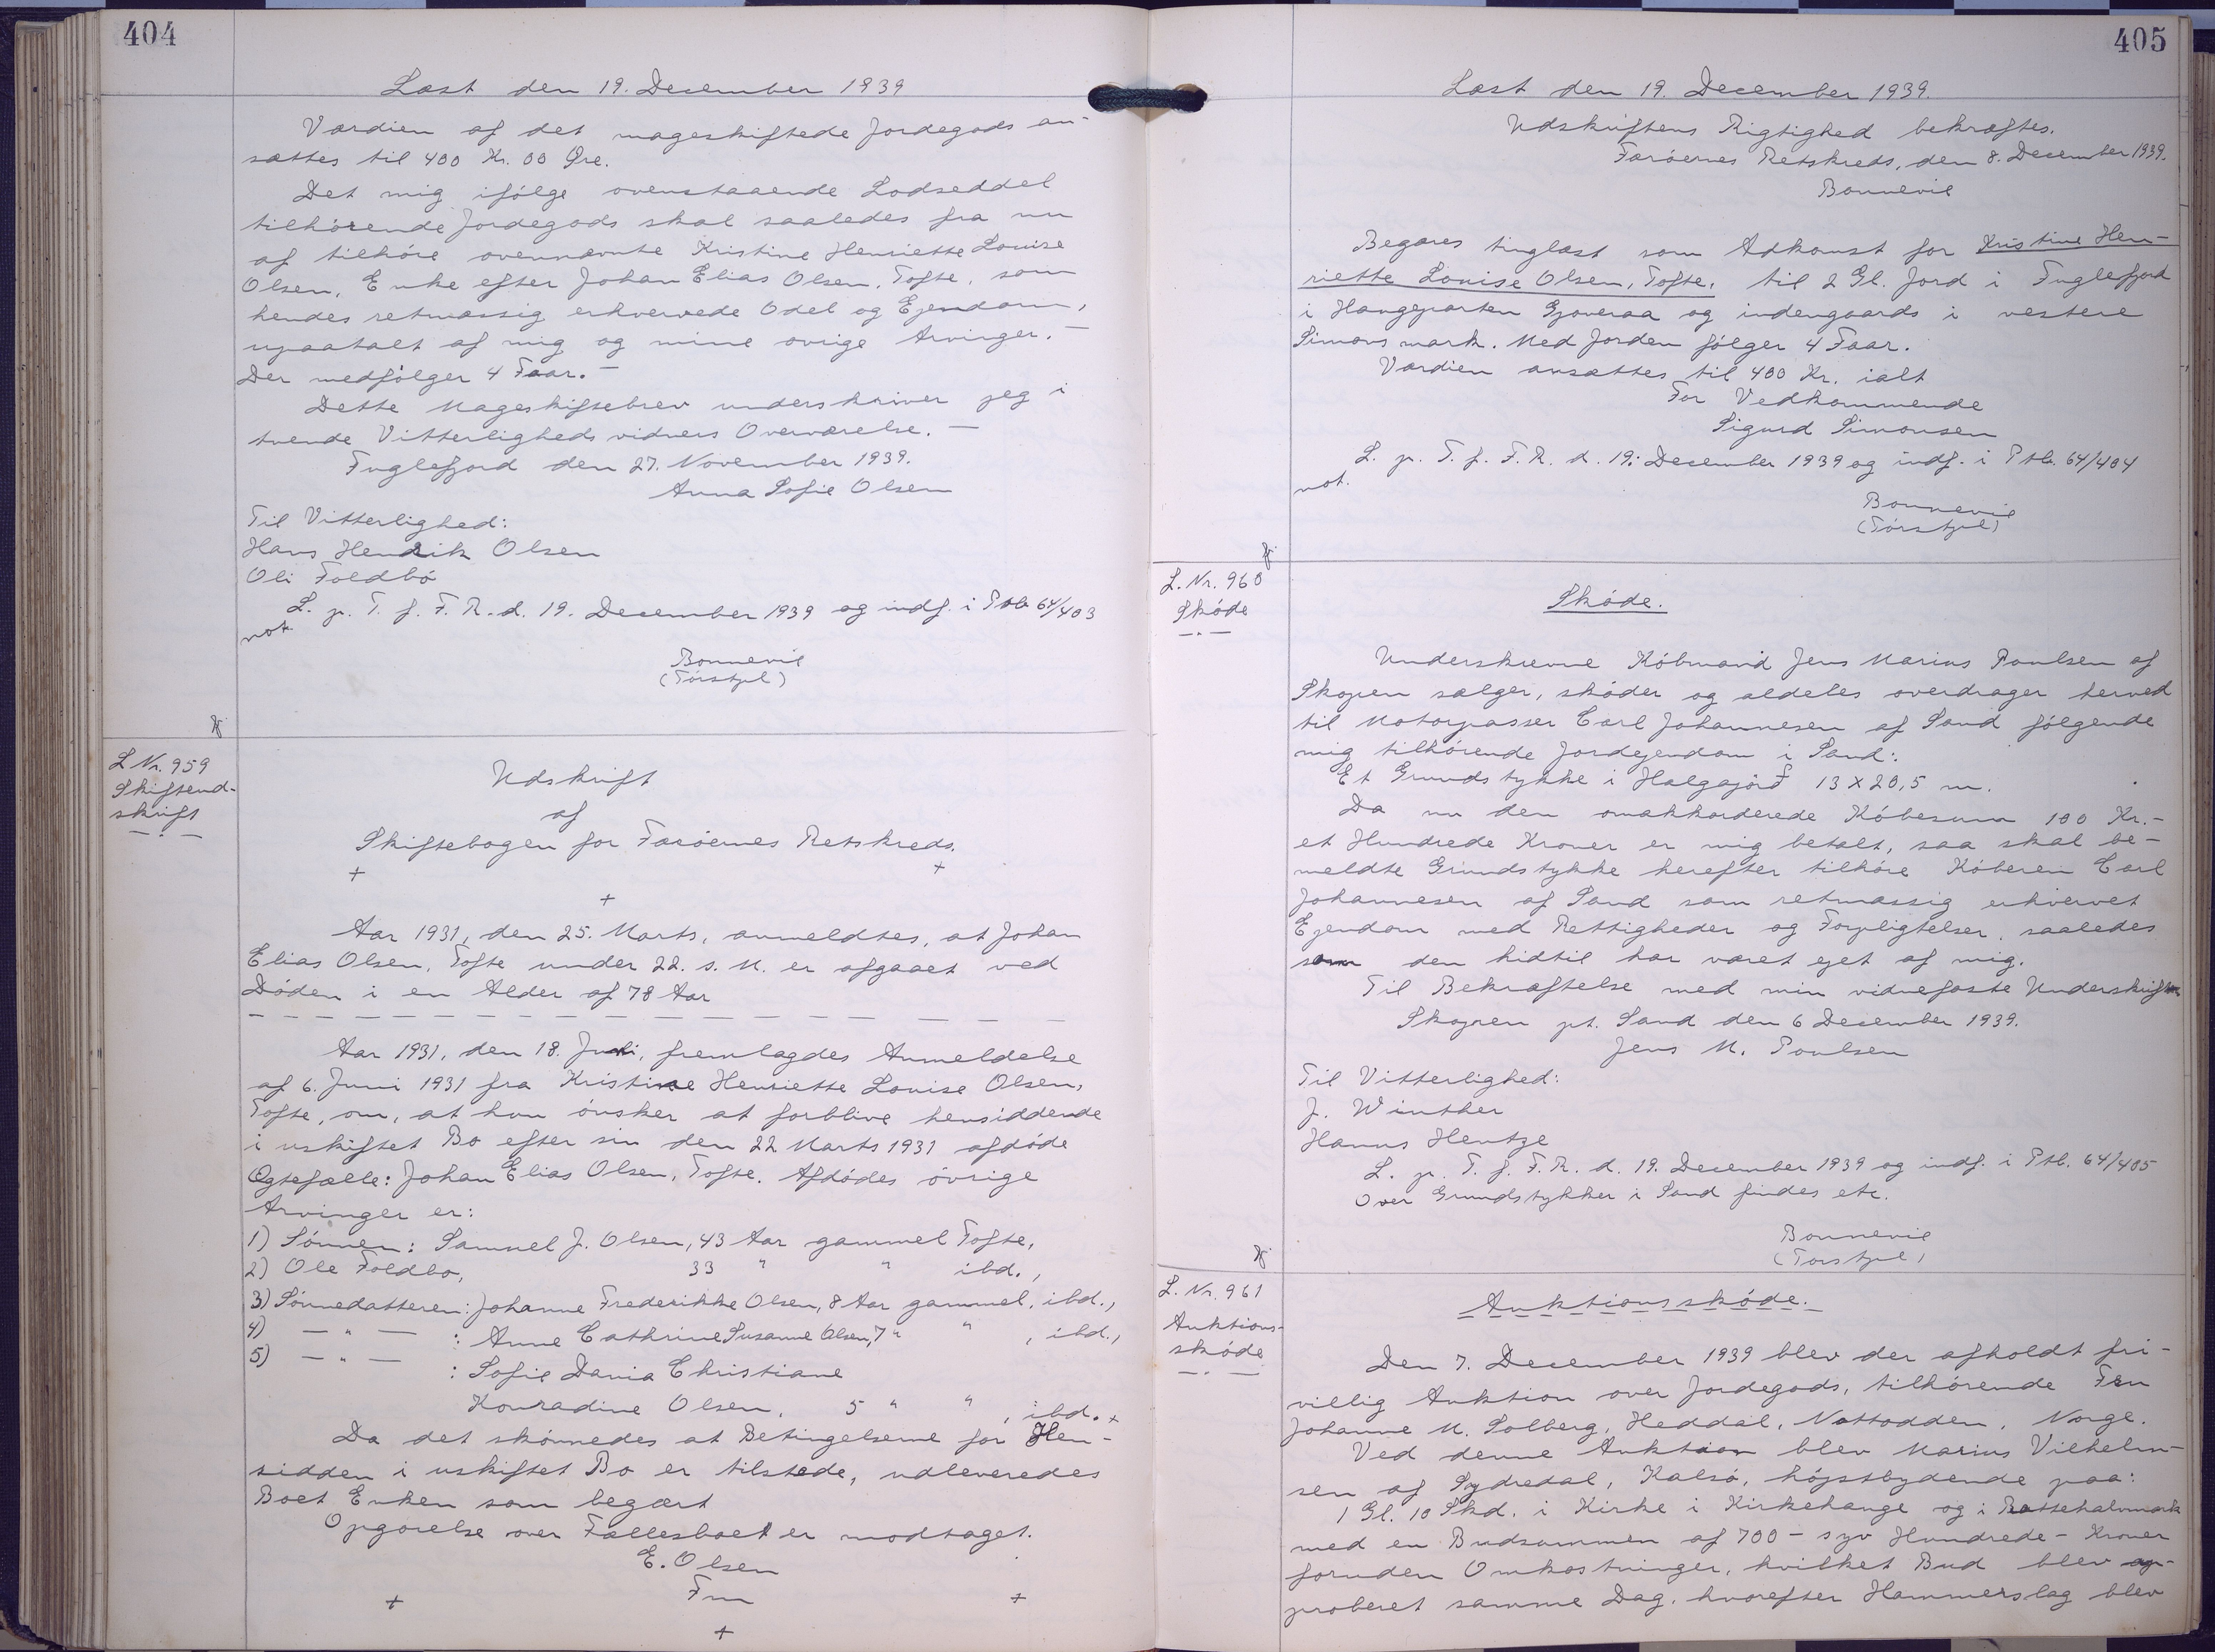 404
Læst den 19. December 1939
Værdien af det mageskiftede Jordegods an-
sættes til 400 Kr. 00 Øre.
Det mig ifølge ovenstaaende Lodseddel
tilhørende Jordegods skal saaledes fra nu
af tilhøre ovennævnte Kristine Henriette Louise
Olsen, Enke efter Johan Elias Olsen, Tofte, som
hendes retmæssig erhvervede Odel og Ejendom,
upaatalt af mig og mine øvrige Arvinger. —
Der medfølger 4 Faar. —
Dette Mageskiftebrev underskriver jeg i
tvende Vitterligheds vidners Overværelse. —
Fuglefjord den 27. November 1939.
Anna Sofie Olsen
Til Vitterlighed:
Hans Hendrik Olsen
Oli Foldbø
L. p. T. f. F. R. d. 19. December 1939 og indf. i Ptb. 64/403
not.
Bonnevie
(Tórstjel)
L Nr. 959
Skifteud-
skrift
Udskrift
af
Skiftebogen for Færøernes Retskreds.
+ + +
Aar 1931, den 25. Marts, anmeldtes, at Johan
Elias Olsen, Tofte under 22. s. M. er afgaaet ved
Døden i en Alder af 78 Aar
— — — — — — — — — — — — — —
Aar 1931, den 18. Juni, fremlagdes Anmeldelse
af 6. Juni 1931 fra Kristine Henriette Louise Olsen,
Tofte, om, at hun ønsker at forblive hensiddende
i uskiftet Bo efter sin den 22 Marts 1931 afdøde
Ægtefælle: Johan Elias Olsen, Tofte. Afdødes øvrige
Arvinger er:
1) Sønnen: Samuel J. Olsen, 43 Aar gammel Tofte,
2) Ole Foldbo, 33 " " ibd.,
3) Sønnedatteren: Johanne Frederikke Olsen, 8 Aar gammel, ibd.,
4) — " — : Anne Cathrine Susanne Olsen, 7 " " , ibd.,
5) — " — : Sofie Dania Christiane
Konradine Olsen, 5 " " , ibd. +
Da det skønnedes at Betingelserne for Hen-
sidden i uskiftet Bo er tilstede, udleveredes
Boet Enken som begært
Opgørelse over Fællesboet er modtaget.
E. Olsen
Fm
+ + +
405
Læst den 19. December 1939.
Udskriftens Rigtighed bekræftes.
Færøernes Retskreds, den 8. December 1939.
Bonnevie
Begæres tinglæst som Adkomst for Kristine Hen-
riette Louise Olsen, Tofte, til 2 Gl. Jord i Fuglefjord
i Haugeparten Gjoveraa og indengaards i vestere
Simons mark. Med Jorden følger 4 Faar.
Værdien ansættes til 400 Kr. ialt
For Vedkommende
Sigurd Simonsen
L. p. T. f. F. R. d. 19: December 1939 og indf. i Ptb. 64/404
not.
Bonnevie
(Tórstjel)
L. Nr. 960
Skøde
Skøde.
Underskrevne Købmand Jens Marius Poulsen af
Skopen sælger, skøder og aldeles overdrager herved
til Motorpasser Carl Johannesen af Sand følgende
mig tilhørende Jordejendom i Sand:
Et Grundstykke i Halgajørð 13 X 20,5 m.
Da nu den omakkorderede Købesum 100 Kr.-
et Hundrede Kroner er mig betalt, saa skal be-
meldte Grundstykke herefter tilhøre Køberen Carl
Johannesen af Sand som retmæssig erhvervet
Ejendom med Rettigheder og Forpligtelser, saaledes
som den hidtil har været ejet af mig.
Til Bekræftelse med min vidnefaste Underskrift
Skopen pt. Sand den 6 December 1939.
Jens M. Poulsen
Til Vitterlighed:
J. Winther
Hanus Hentze
L. p. T. f. F. R. d. 19. December 1939 og indf. i Ptb. 64/405
Over Grundstykker i Sand findes etc.
Bonnevie
(Tórstjel)
L. Nr. 961
Auktions-
skøde
Auktionsskøde.
Den 7. December 1939 blev der afholdt fri-
villig Auktion over Jordegods, tilhørende Fru
Johanne M. Solberg, Heddal, Nottodden, Norge.
Ved denne Auktion blev Marius Vilhelm-
sen af Sydredal, Kalsø, højstbydende paa:
1 Gl. 10 Skd. i Kirke i Kirkehauge og i
med en Budsummen af 700 - syv Hundrede - Kroner
foruden Omkostninger, hvilket Bud blev ap-
proberet samme Dag, hvorefter Hammerslag blev